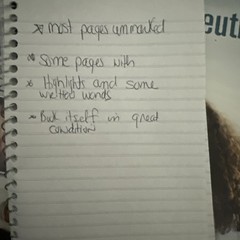 * most pages unmarked
* Some pages with
* Highlights and some
written words
* Book itself in great
condition